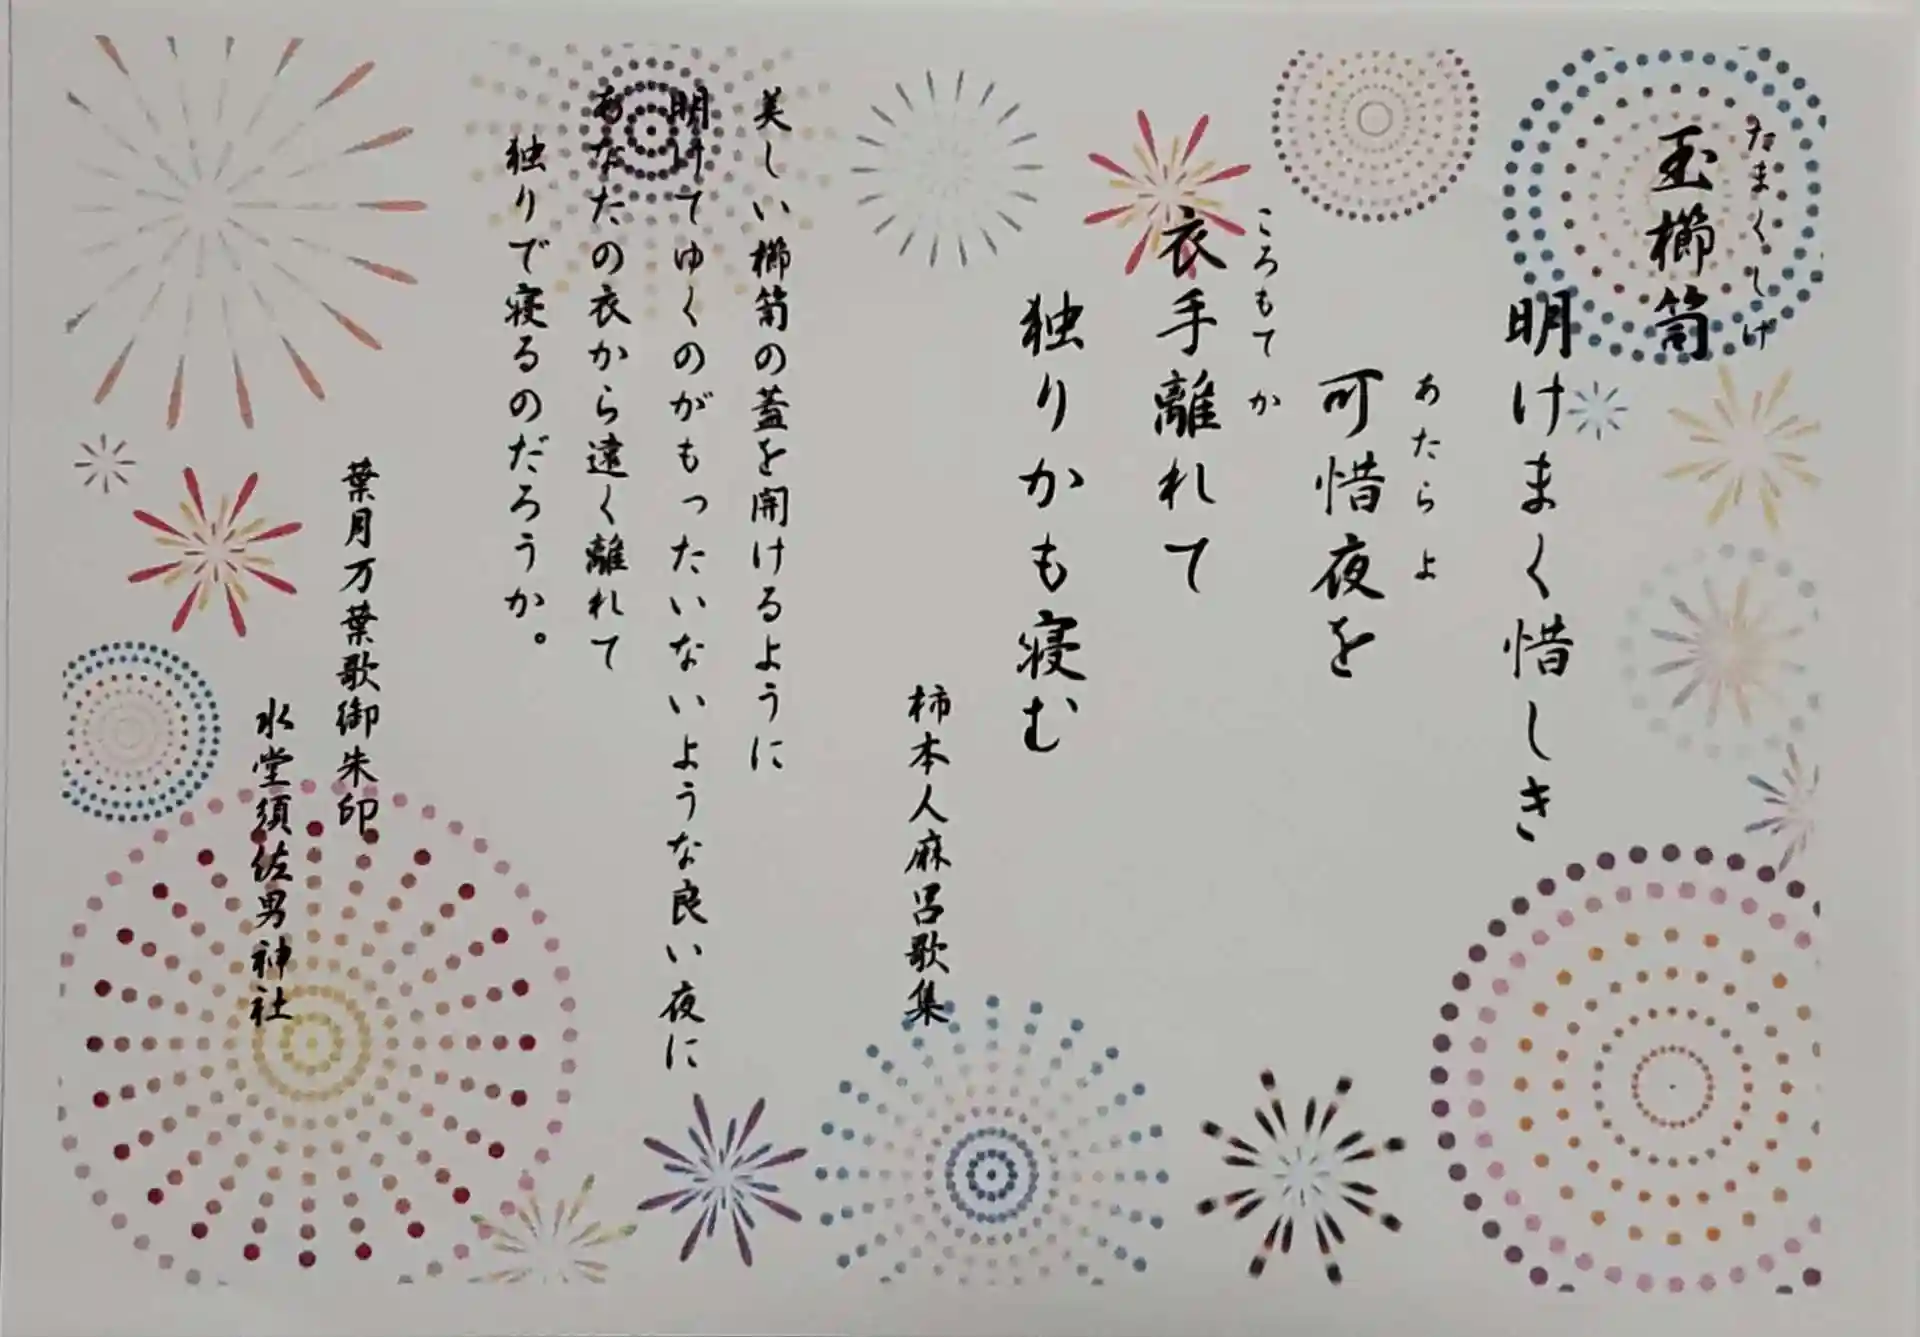 たまくしげ
玉櫛笥
明けまく惜しき
あたらよ
可惜夜を
ころもで か
衣手離れて
独りかも寝む
柿本人麻呂歌集
美しい櫛笥の蓋を開けるように
明けてゆくのがもったいないような良い夜に
あなたの衣から遠く離れて
独りで寝るのだろうか。
葉月万葉歌御朱印
水堂須佐男神社